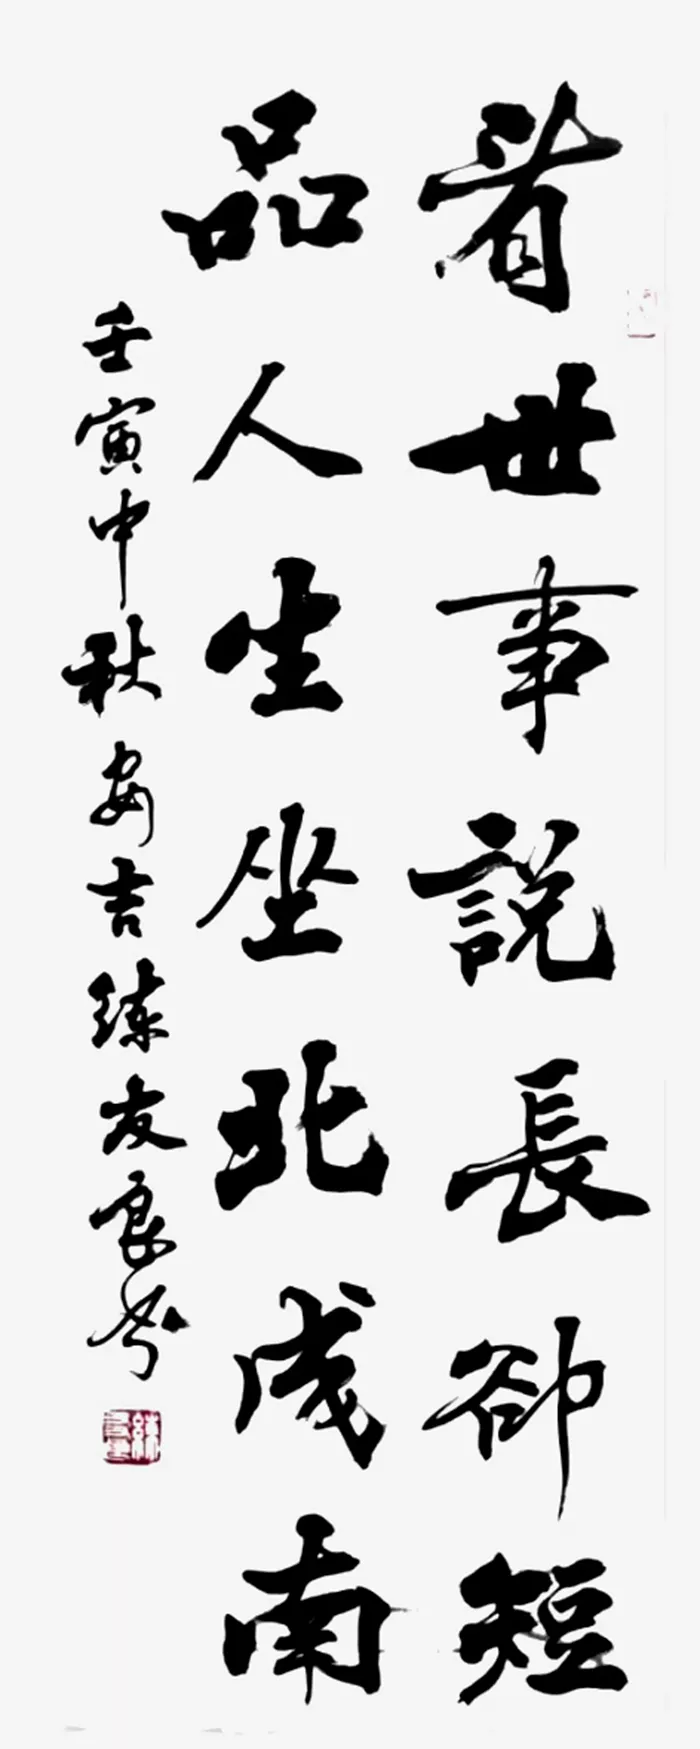 看世事說長卻短
品人生坐北成南
壬寅中秋安吉練友良书